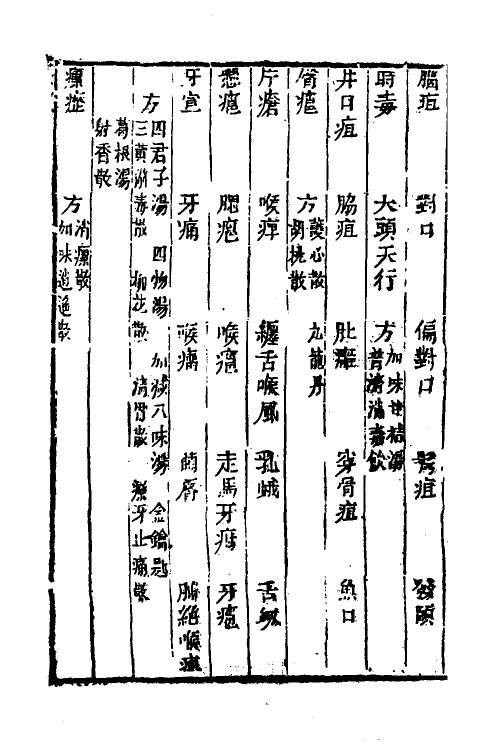 腦疽 對口 偏對口 鬂疽 發頤
時毒 大頭天行 方 加味甘桔湯 普濟消毒飲
井口疽 脇疽 肚癰 穿骨疽 魚口
方 護心散 胡桃散 九龍丹
喉痺 纏舌喉風 乳蛾 舌
懸癰 腮疱 喉瘤 走馬牙疳 牙癰
牙宣 牙痛 喉癰 繭唇 肺絕喉
方 四君子湯 四物湯 加減八味湯 金鑰匙
三黃消毒散 柳花散 清胃散 牙止痛
葛根湯
射香散
瘰癧 方 消瘰散
加味逍遙散